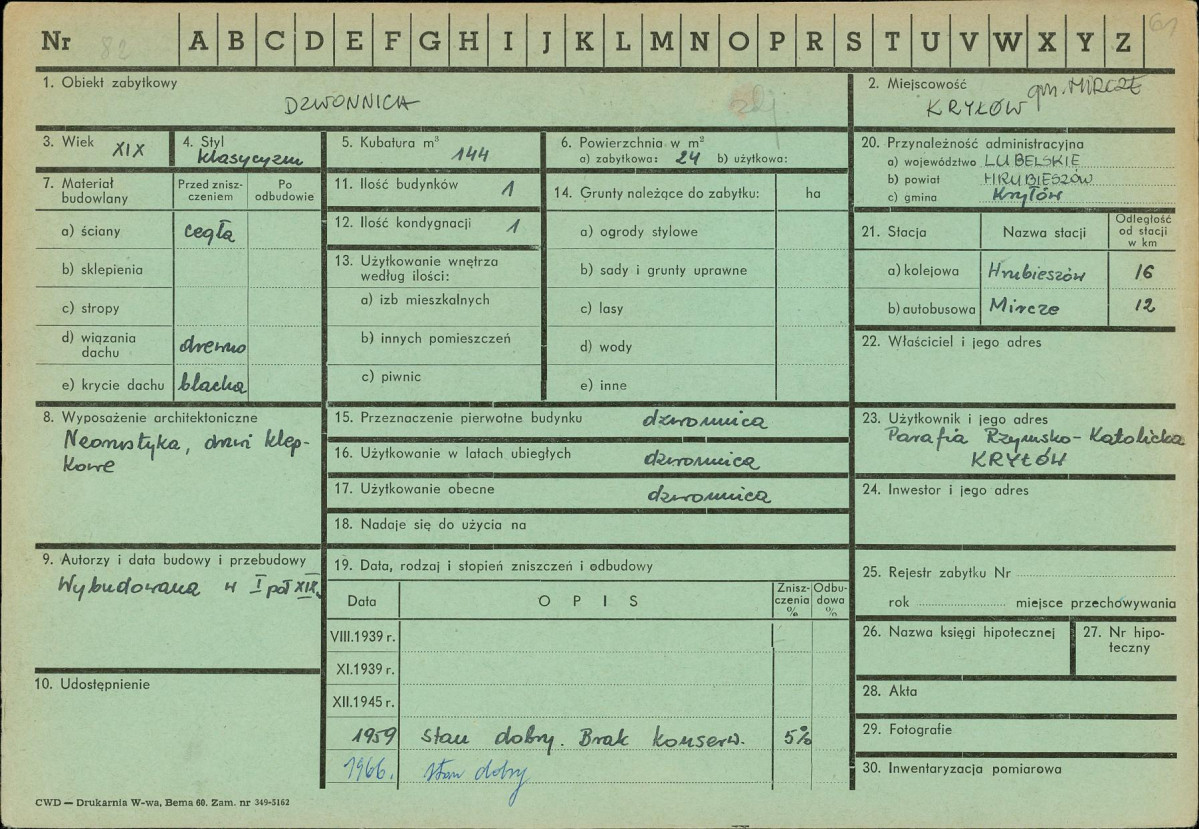 Nr 82 A B C D E F G H I J K L M N O P R S T U V W X Y Z 61
1. Obiekt zabytkowy
DZWONNICA
zdj
2. Miejscowość gm. MIRCZE
KRYŁÓW
3. Wiek XIX
4. Styl
klasycyzm
5. Kubatura m³ 144
6. Powierzchnia w m²
a) zabytkowa: 24 b) użytkowa:
20. Przynależność administracyjna
a) województwo LUBELSKIE
b) powiat HRUBIESZÓW
c) gmina Kryłów
7. Materiał budowlany
Przed zniszczeniem
Po odbudowie
a) ściany cegła
b) sklepienia
c) stropy
d) wiązania dachu drewno
e) krycie dachu blacha
11. Ilość budynków 1
12. Ilość kondygnacji 1
13. Użytkowanie wnętrza
według ilości:
a) izb mieszkalnych
b) innych pomieszczeń
c) piwnic
14. Grunty należące do zabytku: ha
a) ogrody stylowe
b) sady i grunty uprawne
c) lasy
d) wody
e) inne
21. Stacja Nazwa stacji
Odległość
od stacji
w km
a) kolejowa Hrubieszów 16
b) autobusowa Mircze 12
22. Właściciel i jego adres
8. Wyposażenie architektoniczne
drzwi klep-
kowe
15. Przeznaczenie pierwotne budynku dzwonnica
16. Użytkowanie w latach ubiegłych dzwonnica
17. Użytkowanie obecne dzwonnica
18. Nadaje się do użycia na
23. Użytkownik i jego adres
Parafia Rzymsko-Katolicka
KRYŁÓW
24. Inwestor i jego adres
9. Autorzy i data budowy i przebudowy
Wybudowana w I poł XIX.
10. Udostępnienie
19. Data, rodzaj i stopień zniszczeń i odbudowy
Data OPIS
Znisz-
czenia
%
Odbu-
dowa
%
VIII.1939 r.
XI.1939 r.
XII.1945 r.
1959 stan dobry. Brak konserw. 5%
1966. stan dobry
25. Rejestr zabytku Nr
rok miejsce przechowywania
26. Nazwa księgi hipotecznej
27. Nr hipo-
teczny
28. Akta
29. Fotografie
30. Inwentaryzacja pomiarowa
CWD — Drukarnia W-wa, Bema 60. Zam. nr 349-5162